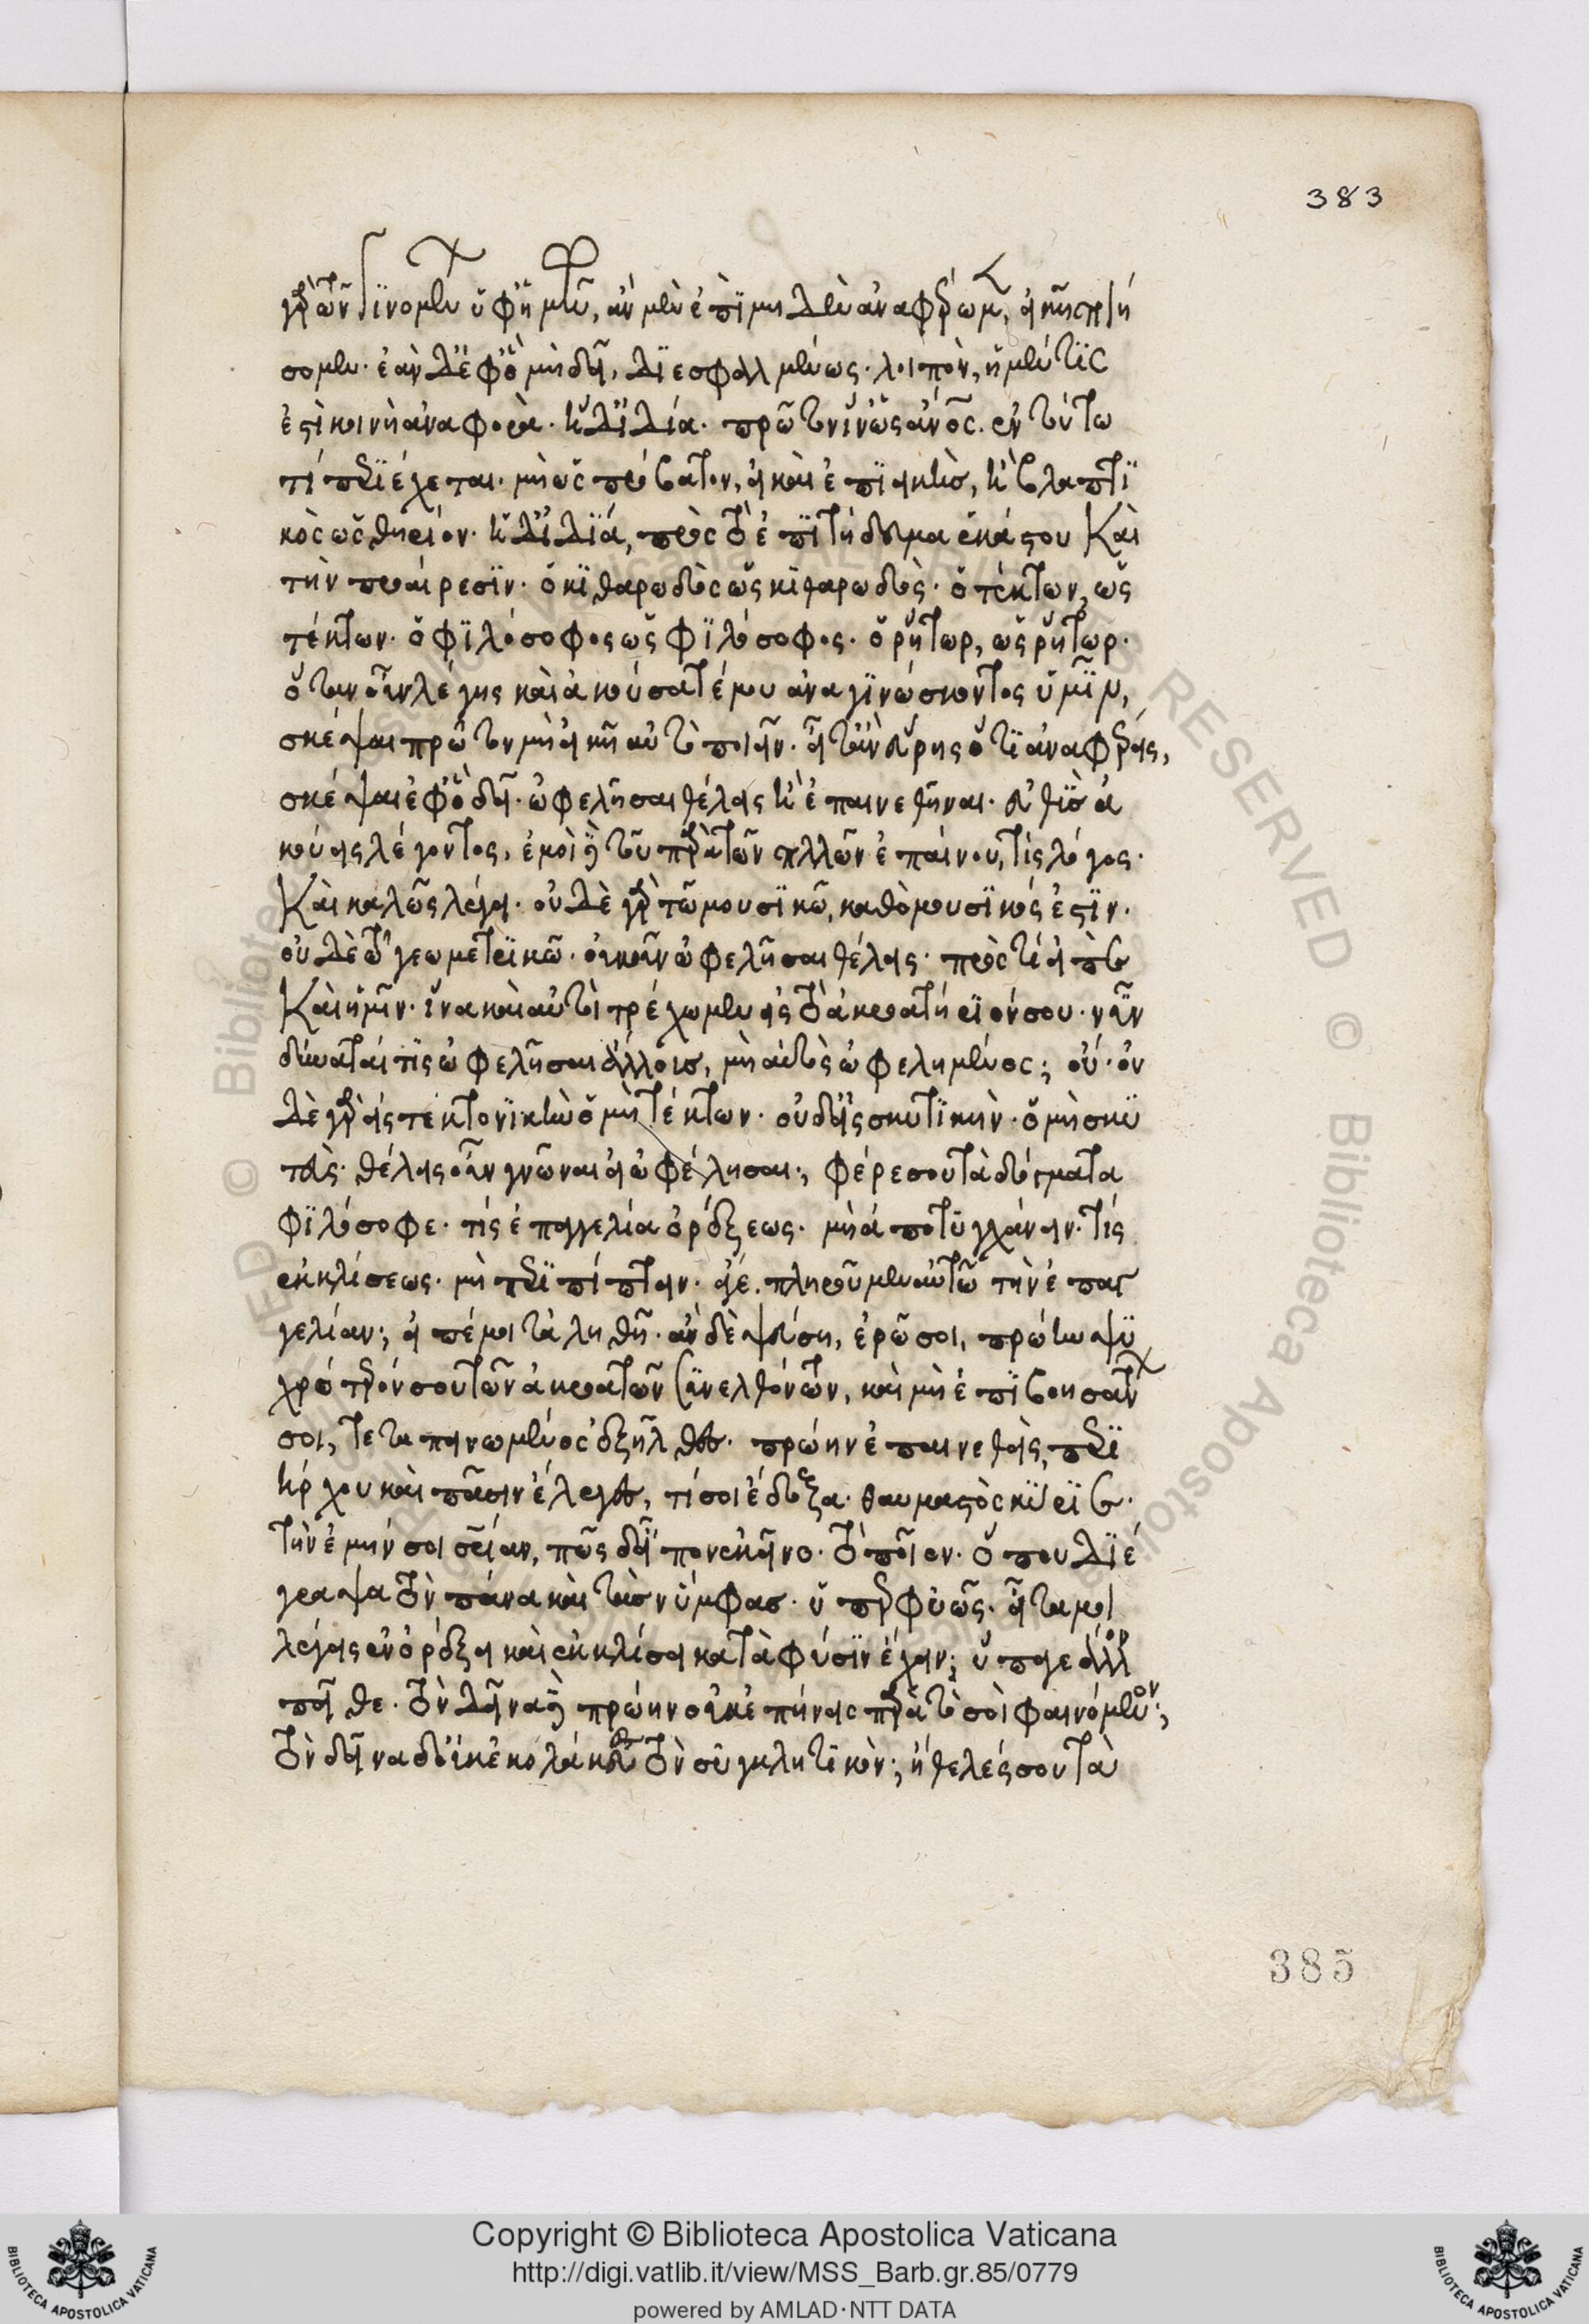 γὰρ ὧν γινομένων ὑφ' ἡμῶν, ἂν μὲν ἐπὶ μηδὲν ἀναφέρωμεν, εἰκῆ ποιή
σομεν· ἐὰν δὲ ἐφ' ὃ μὴ δεῖ, διεσφαλμένως· λοιπὸν, ἡ μέν τίς
ἐστὶ κοινὴ ἀναφορὰ· ἡ δ' ἰδία· πρῶτον ἵν' ὡς ἄνθρωπος· ἐν τούτω
τί περιέχεται· μὴ ὡς πρόβατον, εἰ καὶ ἐπιεικὴς, ἢ βλαπτι
κὸς ὡς θηρίον· ἡ δ' ἰδία, πρὸς τὸ ἐπιτήδευμα ἑκάστου καὶ
τὴν προαίρεσιν· ὁ κιθαρωδὸς ὡς κιθαρωδὸς· ὁ τέκτων, ὡς
τέκτων· ὁ φιλόσοφος ὡς φιλόσοφος· ὁ ῥήτωρ, ὡς ῥήτωρ·
ὅταν οὖν λέγης καὶ ἀκούσατέ μου ἀναγινώσκοντος ὑμῖν,
σκέψαι πρῶτον μὴ εἰκῆ αὐτὸ ποιεῖν· εἶτ' ἂν εὕρης ὅτι ἀναφέρεις,
σκέψαι ἐφ' ὃ δεῖ· ὠφελῆσαι θέλεις ἢ ἐπαινεθῆναι· εὐθὺς ἀ
κούεις λέγοντος, ἐμοὶ δὲ τοῦ παρὰ τῶν πολλῶν ἐπαίνου, τίς λόγος·
Καὶ καλῶς λέγει· οὐδὲ γὰρ τῶ μουσικῶ, καθὸ μουσικός ἐστιν·
οὐδὲ τῶ γεωμετρικῶ· οὐκοῦν ὠφελῆσαι θέλεις· πρὸς τί εἰπὲ
Καὶ ἡμῖν· ἵνα καὶ αὐτοὶ τρέχωμεν εἰς τὸ ἀκροατήριόν σου· νῦν
δύναταί τις ὠφελῆσαι ἄλλους, μὴ αὐτὸς ὠφελημένος; οὔ· οὐ
δὲ γὰρ εἰς τεκτονικὴν ὁ μὴ τέκτων· οὐδ' εἰς σκυτικὴν· ὁ μὴ σκυ
τεὺς· θέλεις οὖν γνῶναι εἰ ὠφέλησαι; φέρε σου τὰ δόγματα
φιλόσοφε· τίς ἐπαγγελία ὀρέξεως· μὴ ἀποτυγχάνειν· τίς
ἐκκλίσεως· μὴ περιπίπτειν· ἄγε· πληροῦμεν αὐτῶν τὴν ἐπαγ
γελίαν; εἰπέ μοι τἀληθῆ· ἂν δὲ ψεύση, ἐρῶ σοι, πρώην ψυ
χρότερόν σου τῶν ἀκροατῶν συνελθόντων, καὶ μὴ ἐπιβοησάντων
σοι, τεταπεινωμένος ἐξῆλθες· πρώην ἐπαινεθεὶς, περι
ήρχου καὶ πᾶσιν ἔλεγες, τί σοι ἔδοξα· θαυμαστὸς κύριε·
τὴν ἐμήν σοι σωτηρίαν, πῶς δ' εἶπον ἐκεῖνο· τὸ ποῖον· ὅπου διέ
γραψα τὸν πάνα καὶ τὰς νύμφας· ὑπερφυῶς· εἶτά μοι
λέγεις ἐν ὀρέξει καὶ ἐκκλίσει κατὰ φύσιν ἔχειν; ὕπαγε ἄλλον
πεῖθε· τὸν δεῖνα δὲ πρώην οὐκ ἐπήνεις παρὰ τὸ σοὶ φαινόμενον;
τὸν δεῖνα δ' οὐκ ἐκολάκευες τὸν συγκλητικὸν; ἤθελές σου τὰ
383
385
Copyright © Biblioteca Apostolica Vaticana
http://digi.vatlib.it/view/MSS_Barb.gr.85/0779
powered by AMLAD·NTT DATA